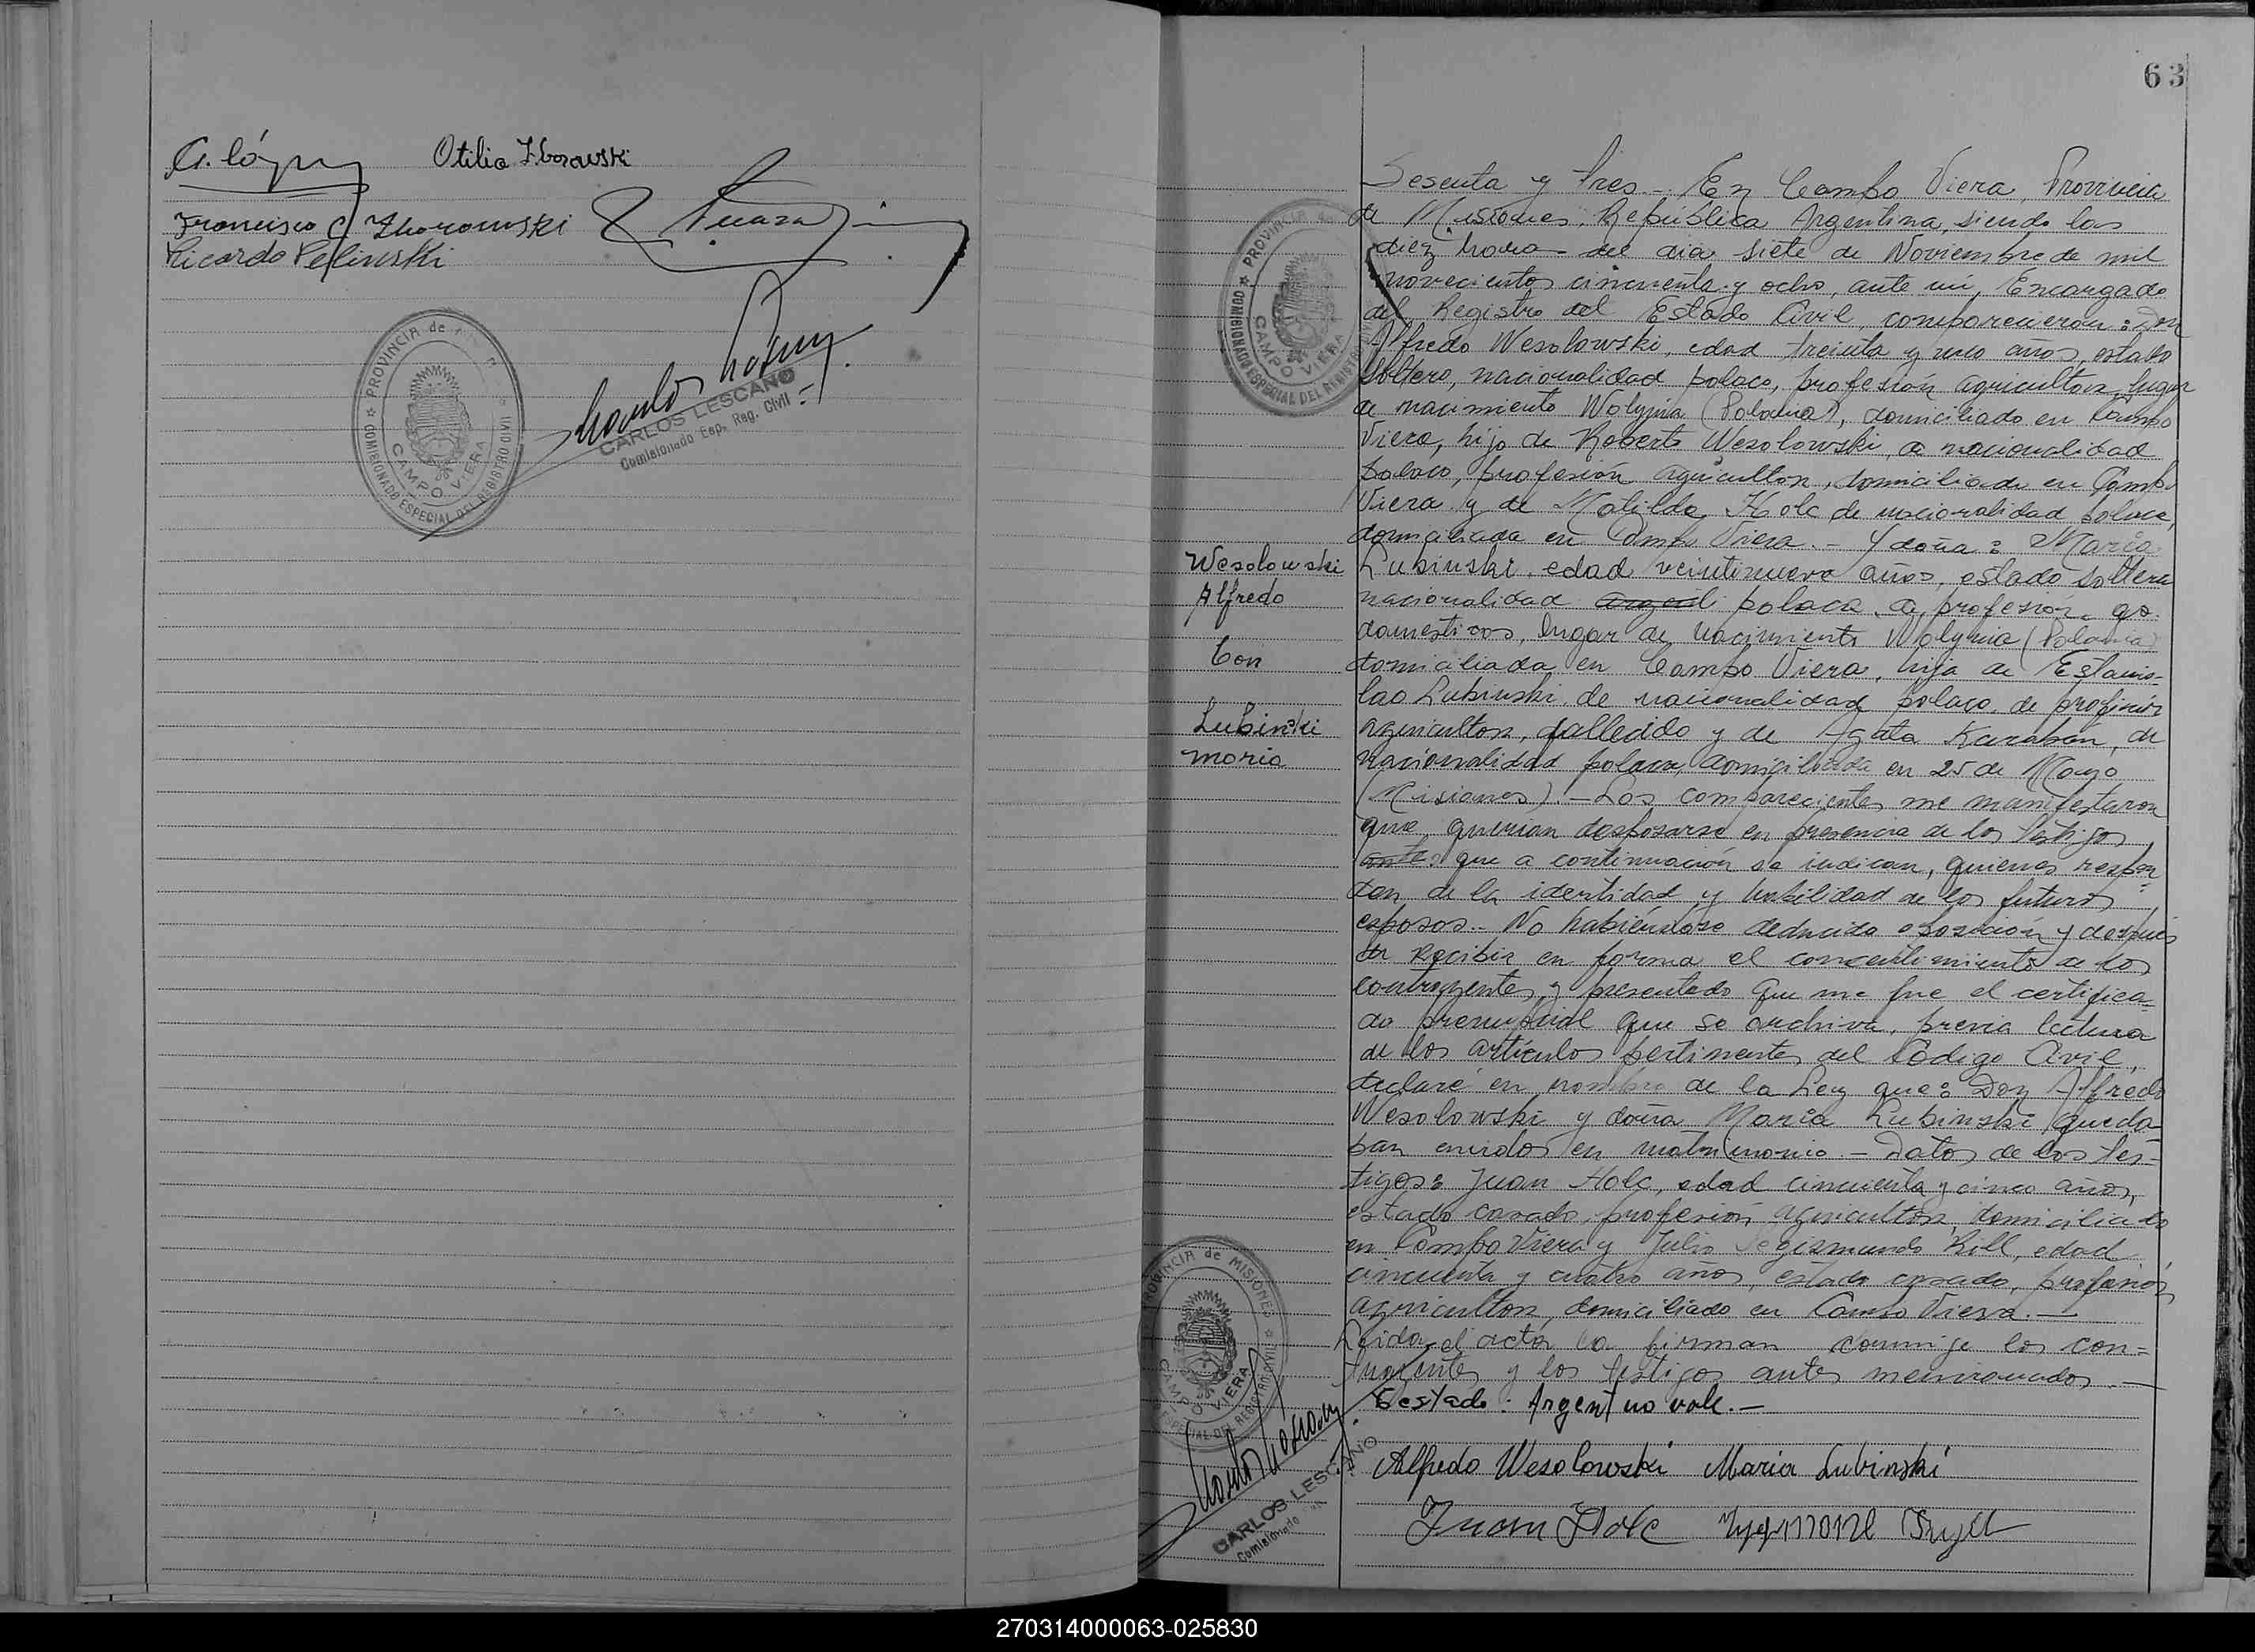 Otilia Zborowski
Francisco Zborowski
Ricardo Pelinski
PROVINCIA de
COMISIONADO ESPECIAL DEL REGISTRO CIVIL
CAMPO VIERA
CARLOS LESCANO
Comisionado Esp. Reg. Civil
63
PROVINCIA
COMISIONADO ESPECIAL DEL REGISTRO
CAMPO VIERA
Wesolowski
Alfredo
Con
Lubinski
maria
Sesenta y tres.- En Campo Viera, Provincia
de Misiones, República Argentina, siendo las
diez hora del dia siete de Noviembre de mil
novecientos cincuenta y ocho, ante mi, Encargado
del Registro del Estado Civil, comparecieron: Don
Alfredo Wesolowski, edad treinta y uno años, estado
soltero, nacionalidad polaco, profesión agricultor, lugar
de nacimiento Wolynia (Polonia), domiciliado en Campo
Viera, hijo de Roberto Wesolowski, de nacionalidad
polaco, profesión agricultor, domiciliado en Campo
Viera y de Matilde Holc de nacionalidad polaca,
domiciliada en Campo Viera.- Y doña: María
Lubinski, edad veintinueve años, estado soltera
nacionalidad polaca, de profesión, qs.
domesticos, lugar de nacimiento Wolynia (Polonia)
domiciliada en Campo Viera, hija de Estanis-
lao Lubinski, de nacionalidad polaco, de profesión
agricultor, fallecido y de Agata Karaban, de
nacionalidad polaca, domiciliada en 25 de Mayo
(Misiones).- Los comparecientes me manifestaron
que querian desposarse en presencia de los testigos
que a continuación se indican, quienes respon-
den de la identidad y habilidad de los futuros
esposos.- No habiéndose deducido oposición y después
de recibir en forma el consentimiento de los
contrayentes, y presentado que me fue el certifica-
do prenupcial que se archiva, previa lectura
de los artículos pertinentes del Código Civil,
declaré en nombre de la Ley que: Don Alfredo
Wesolowski y doña Maria Lubinski queda-
ban unidos en matrimonio.- Datos de los tes-
tigos: Juan Holc, edad cincuenta y cinco años,
estado casado, profesión agricultor, domiciliado
en Campo Viera y Julio Segismundo Rill, edad
cincuenta y cuatro años, estado casado, profesión
agricultor, domiciliado en Campo Viera.-
Leida el acta la firman conmigo los con=
trayentes y los testigos antes mencionados.-
Testado: Argent no vale.-
Alfredo Wesolowski Maria Lubinski
Juan Holc
PROVINCIA de MISIONES
ESPECIAL DEL REGISTRO CIVIL
CAMPO VIERA
CARLOS LESCANO
Comisionado
270314000063-025830